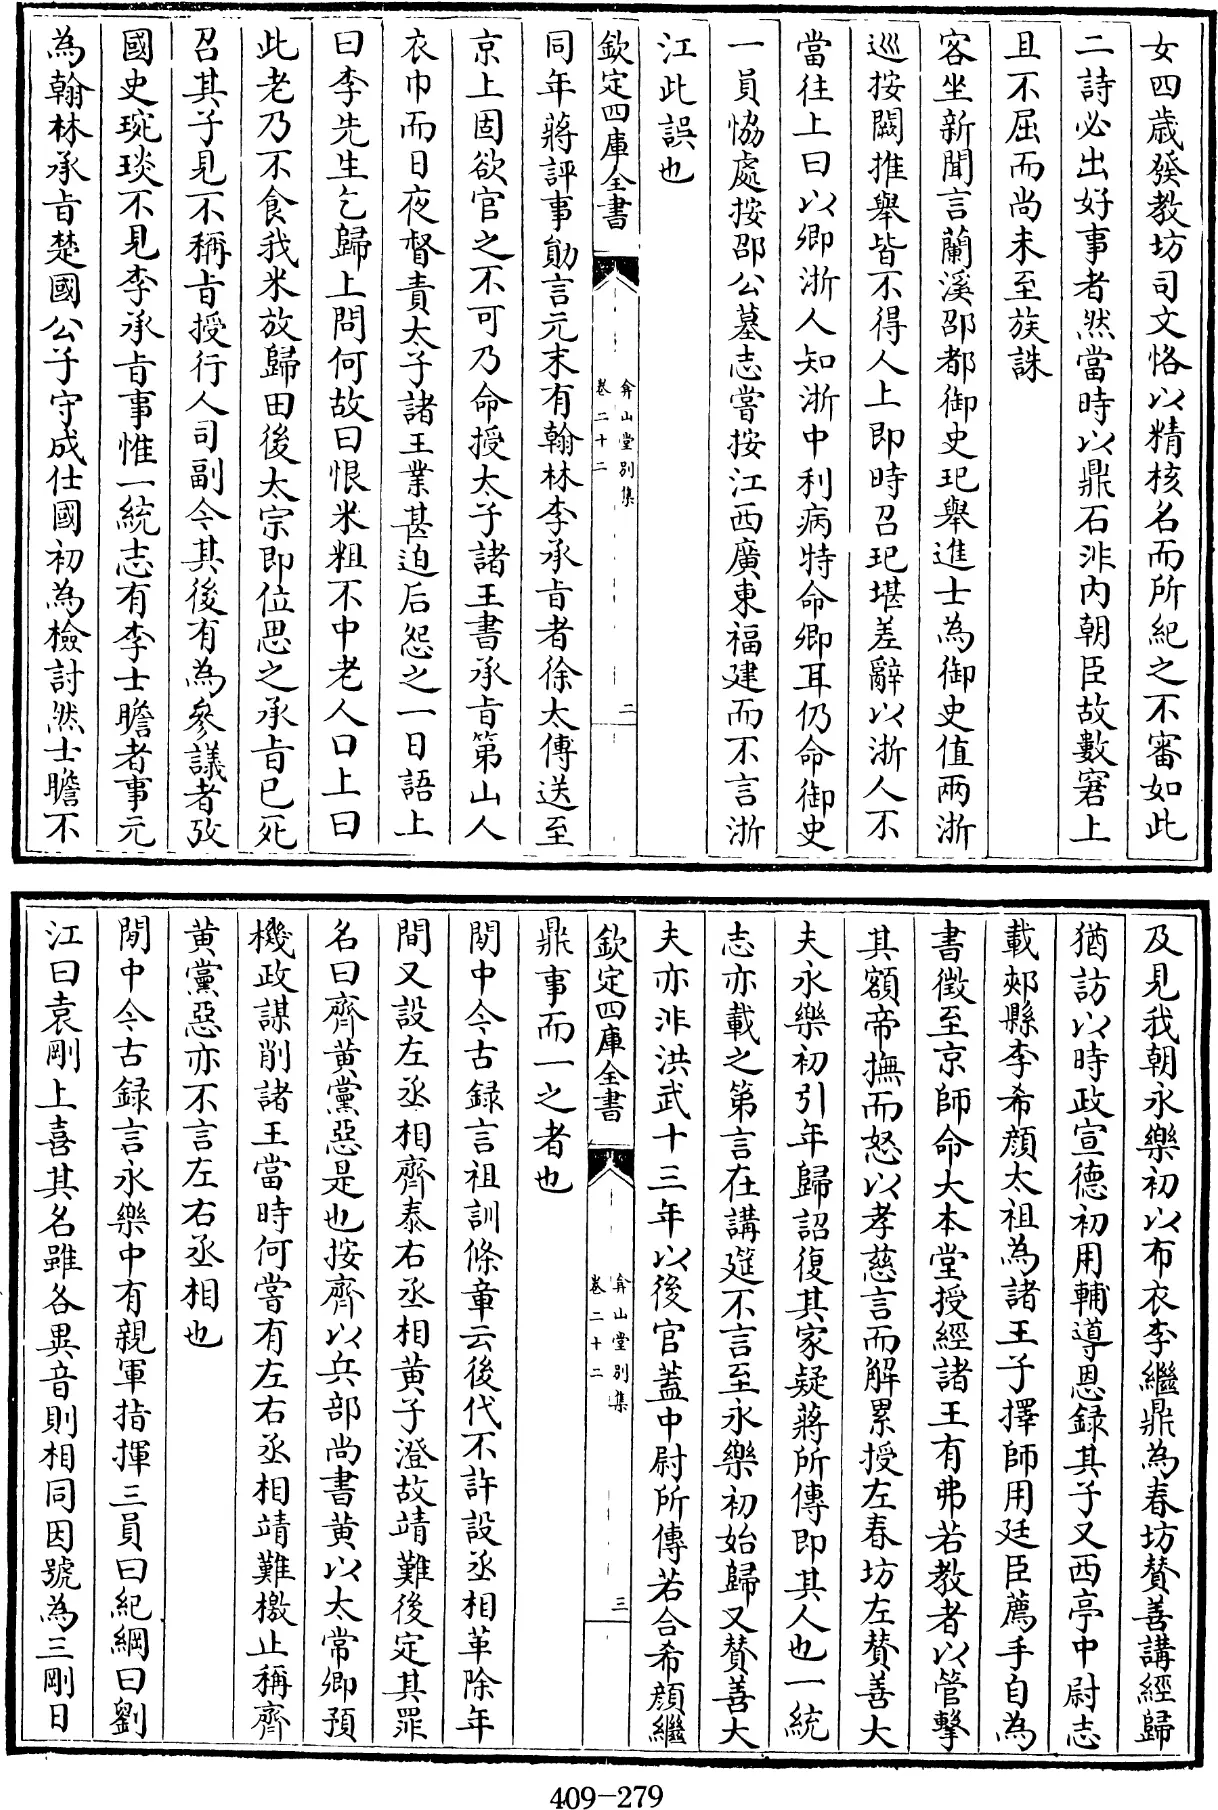 女四歳發教坊司文恪以精核名而所紀之不審如此
二詩必出好事者然當時以鼎石非内朝臣故數窘上
且不屈而尚未至族誅
客坐新聞言蘭溪邵都御史玘舉進士為御史值兩浙
巡按闕推舉皆不得人上即時召玘堪差辭以浙人不
當往上曰以卿浙人知浙中利病特命卿耳仍命御史
一員恊處按邵公墓志嘗按江西廣東福建而不言浙
江此誤也
欽定四庫全書
弇山堂别集
卷二十二
二
同年蔣評事勛言元末有翰林李承㫖者徐太傅送至
京上固欲官之不可乃命授太子諸王書承㫖第山人
衣巾而日夜督責太子諸王業甚迫后怨之一日語上
曰李先生乞歸上問何故曰恨米粗不中老人口上曰
此老乃不食我米放歸田後太宗即位思之承㫖已死
召其子見不稱㫖授行人司副今其後有為參議者攷
國史琬琰不見李承㫖事惟一統志有李士瞻者事元
為翰林承㫖楚國公子守成仕國初為檢討然士瞻不
及見我朝永樂初以布衣李繼鼎為春坊賛善講經歸
猶訪以時政宣德初用輔導恩録其子又西亭中尉志
載郟縣李希顔太祖為諸王子擇師用廷臣薦手自為
書徵至京師命大本堂授經諸王有弗若教者以管擊
其額帝撫而怒以孝慈言而解累授左春坊左賛善大
夫永樂初引年歸詔復其家疑蔣所傳即其人也一統
志亦載之第言在講筵不言至永樂初始歸又賛善大
夫亦非洪武十三年以後官蓋中尉所傳若合希顔繼
欽定四庫全書
弇山堂别集
卷二十二
三
鼎事而一之者也
閒中今古録言祖訓條章云後代不許設丞相革除年
間又設左丞相齊泰右丞相黄子澄故靖難後定其罪
名曰齊黄黨惡是也按齊以兵部尚書黄以太常卿預
機政謀削諸王當時何嘗有左右丞相靖難檄止稱齊
黄黨惡亦不言左右丞相也
閒中今古録言永樂中有親軍指揮三員曰紀綱曰劉
江曰袁剛上喜其名雖各異音則相同因號為三剛日
409-279